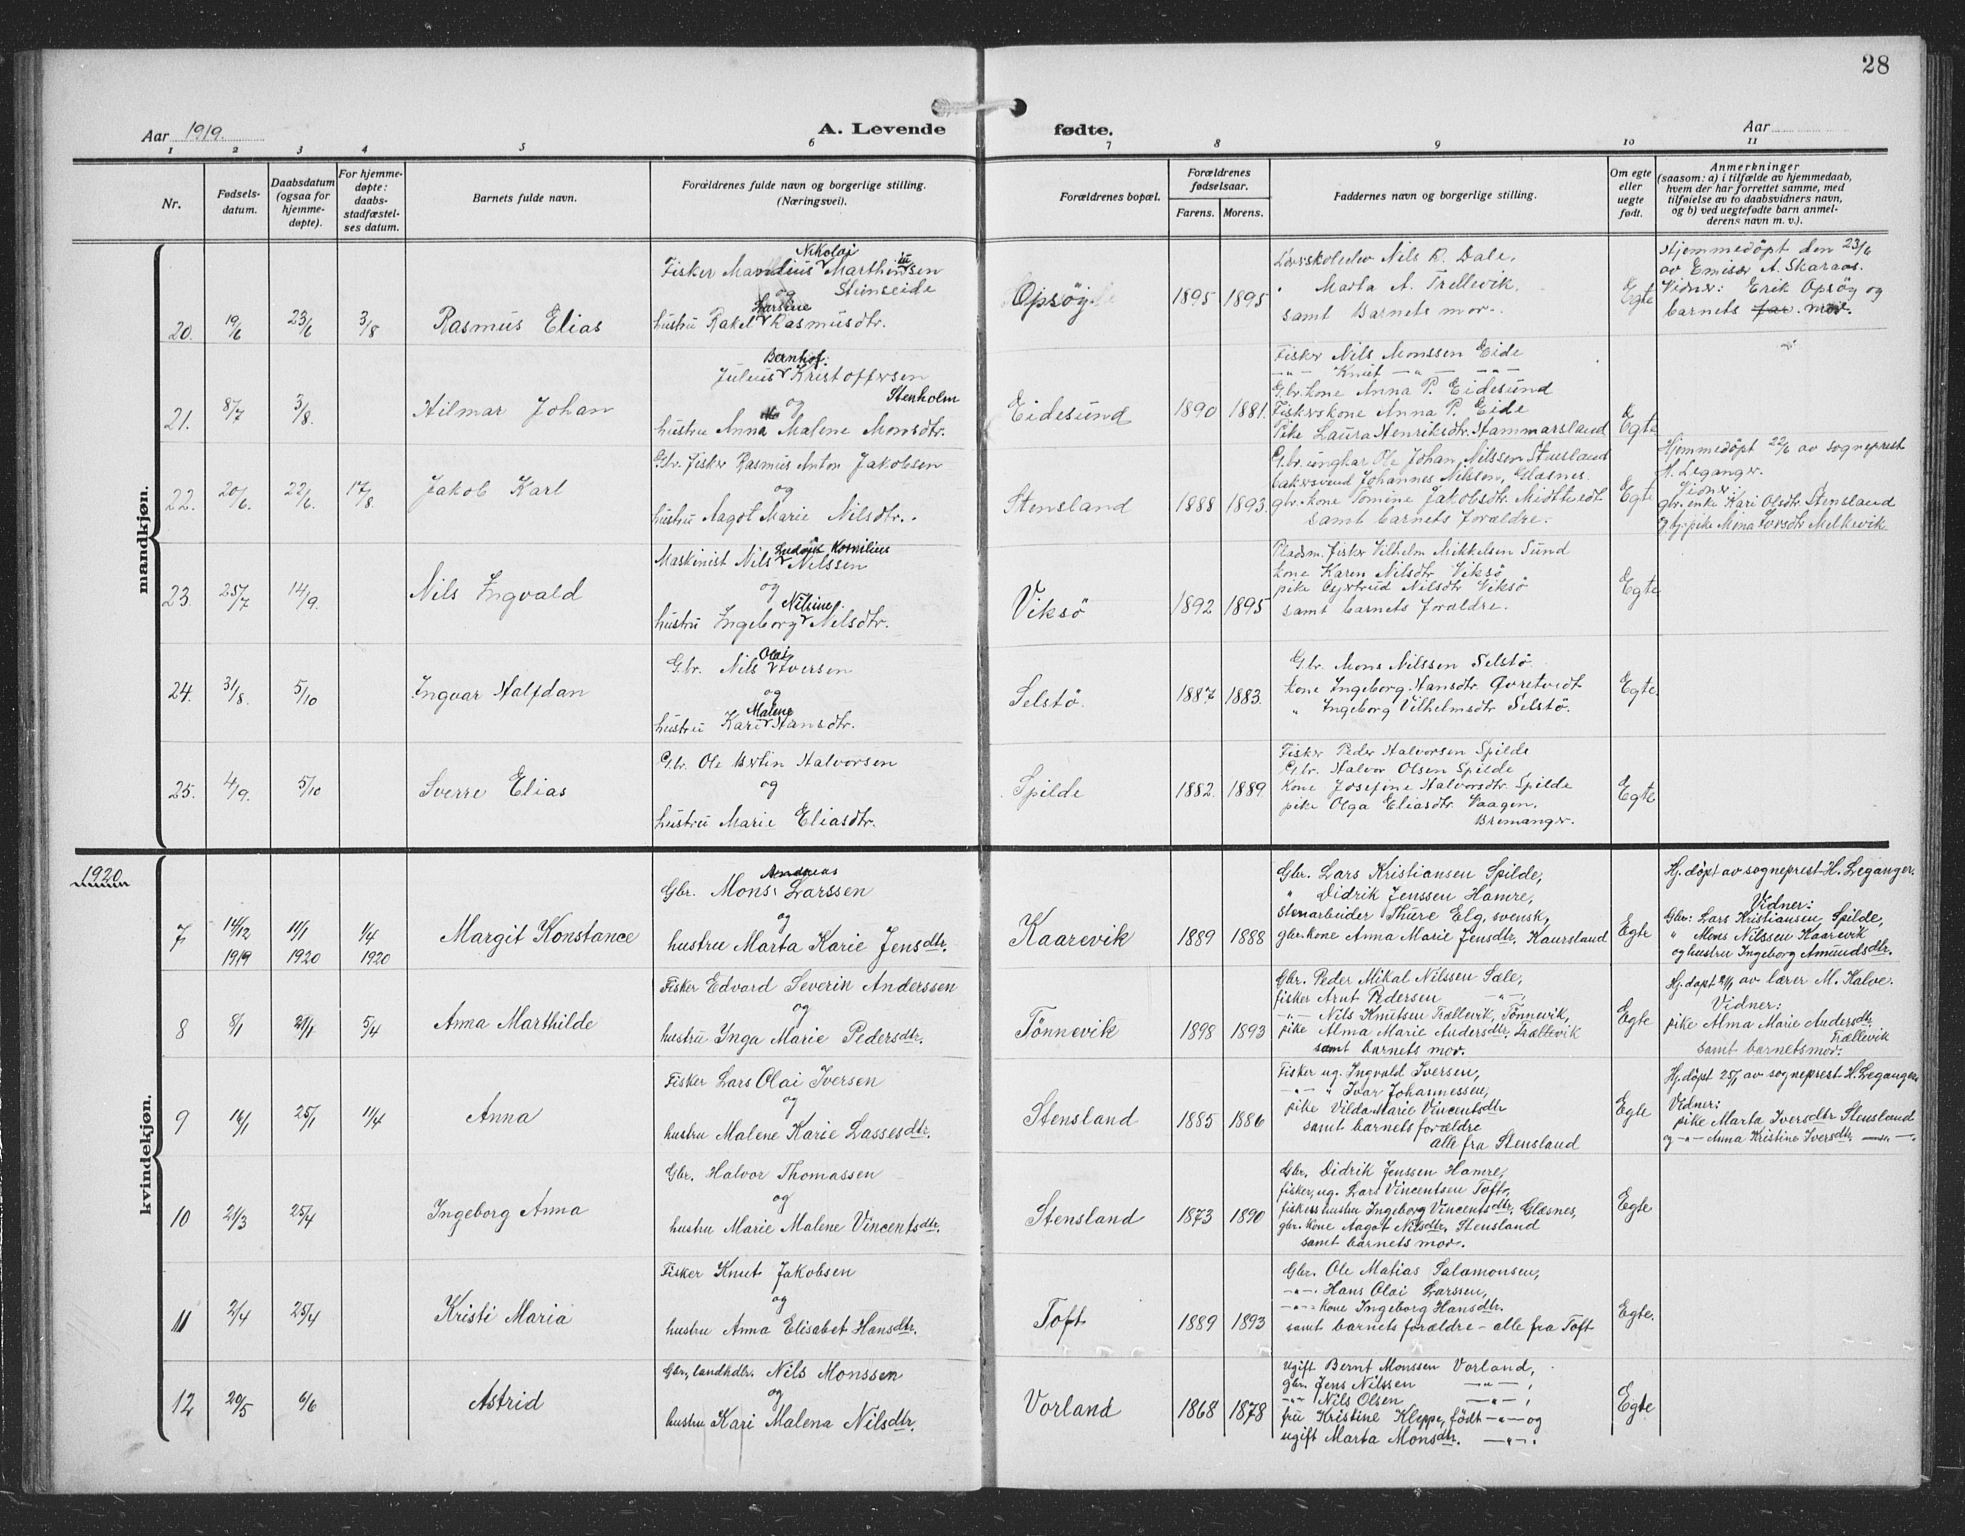 28
Aar 1919.
A. Levende fødte.
Aar
1 2 3 4 5 6 7 8 9 10 11
Nr.
Fødsels-
datum.
Daabsdatum
(ogsaa for
hjemme-
døpte).
For hjemme-
døpte:
daabs-
stadfæstel-
ses datum.
Barnets fulde navn.
Forældrenes fulde navn og borgerlige stilling.
(Næringsvei).
Forældrenes bopæl.
Forældrenes
fødselsaar.
Farens. Morens.
Faddernes navn og borgerlige stilling.
Om egte
eller
uegte
født.
Anmerkninger
(saasom: a) i tilfælde av hjemmedaab,
hvem der har forrettet samme, med
tilføielse av to daabsvidners navn,
og b) ved uegtefødte barn anmel-
derens navn m. v.).
mandkjøn.
20. 19/6 23/6 3/8 Rasmus Elias
Nikolai
Fisker Mandius Marthinsen
og Steinseide
Larsine
hustru Rakel Rasmusdtr.
Opsöy 1895 1895
Nils R. Dale,
" Marta A. Trellevik,
samt Barnets mor.
Egte
Hjemmedöpt den 23/6
av Emisær A. Skaraas.
Vidner: Erik Opsöy og
barnets far. mor.
21. 8/7 3/8. Hilmar Johan
Bernhof.
Julius Kristoffersen
og Stenholm
hustru Anna Malene Monsdtr.
Eidesund 1890 1881.
Fisker Nils Monssen Eide
-"- Knut -"- -"-
Gbr. kone Anna P. Eidesund
Fiskerskone Anna P. Eide
Pike Laura Henriksdtr. Hammarsland
Egte
22. 20/6. 22/6. 17/8. Jakob Karl
Gbr. fisker Rasmus Anton Jakobsen
og
hustru Aagot Marie Nilsdtr.
Stensland 1888 1893.
Gbr. ungkar Ole Johan Nilssen Stensland
bakersvend Johannes Nilsen, Glasnes.
gbr. kone Tomine Jakobsdtr. Midttvedt
samt barnets forældre.
Egte
Hjemmedöpt 22/6 av sogneprest
H. Leganger.
Vidner:
gbr. enke Kari Olsdtr. Stensland
og tj. pike Mina Iversdtr Melkevik
23. 25/7 14/9. Nils Ingvald
Ludvik Kornilius
Maskinist Nils Nilssen
og
Nilsine.
hustru Ingeborg Nilsdtr.
Viksö 1892 1895
Pladsm. fisker Vilhelm Mikkelsen Sund
kone Karen Nilsdtr Viksö
pike Gjertrud Nilsdtr Viksö
samt barnets forældre.
Egte
24. 31/8. 5/10 Ingvar Halfdan
Olai
Gbr. Nils Iversen
og
Malene
hustru Kari Hansdtr.
Selstö. 1887. 1883.
Gbr. Mons Nilssen Selstö.
kone Ingeborg Hansdtr. Øvretvedt
" Ingeborg Vilhelmsdtr Selstö.
Egte
25. 4/9. 5/10 Sverre Elias
Gbr. Ole Bertin Halvorsen
og
hustru Marie Eliasdtr.
Spilde 1882. 1889
Fisker Peder Halvorsen Spilde
Gbr. Halvor Olsen Spilde
Kone Josefine Halvorsdtr. Spilde
pike Olga Eliasdtr. Vaagen.
Bremanger.
Egte
1920
kvindekjøn.
7 14/12 1919 11/1 1920 1/4 1920 Margit Konstance
Andreas
Gbr. Mons Larssen
og
hustru Marta Karie Jensdtr.
Kaarevik 1889 1888
Gbr. Lars Kristiansen Spilde,
" Didrik Jenssen Hamre,
stenarbeider Thure Elg, svensk,
gbr. kone Anna Marie Jensdtr. Kaursland
Egte
Hj. döpt av sogneprest H. Leganger.
Vidner:
Gbr: Lars Kristiansen Spilde,
" Mons Nilssen Kaarevik
og hustru Ingeborg Amundsdtr.
8 8/1 21/1 5/4 Anna Marthilde
Fisker Edvard Severin Anderssen
og
hustru Inga Marie Pedersdtr.
Tönnevik 1898 1893
Gbr. Peder Mikal Nilssen Sæle,
fisker Arnt Pedersen -"-,
-"- Nils Knutsen Trællevik, Tönnevik,
pike Alma Marie Andersdtr. Trællevik
samt barnets mor.
Egte
Hj. döpt 21/1 av lærer M. Kalve.
Vidner:
pike Alma Marie Andersdtr.
Trællevik
samt barnets mor.
9 16/1 25/1 11/4 Anna
Fisker Lars Olai Iversen
og
hustru Malene Karie Lassesdtr.
Stensland 1885 1886
Fisker ug. Ingvald Iversen,
-"- " Ivar Johannessen,
pike Vilda Marie Vincentsdtr
samt barnets forældre
alle fra Stensland
Egte
Hj. döpt 25/1 av sogneprest H. Leganger
Vidner:
pike Marta Iversdtr Stensland
og -"- Anna Kristine Iversdtr -"-
10 21/3 25/4 Ingeborg Anna
Gbr. Halvor Thomassen
og
hustru Marie Malene Vincentsdtr.
Stensland 1873 1890
Gbr. Didrik Jenssen Hamre,
fisker, ug. Lars Vincentsen Toft,
fiskers hustru Ingeborg Vincentsdtr. Glæsnes,
gbr. kone Aagot Nilsdtr. Stensland
samt barnets mor.
Egte
11 2/4 25/4 Kristi Maria
Fisker Knut Jakobsen
og
hustru Anna Elisabet Hansdtr.
Toft 1889 1893
Gbr. Ole Matias Salamonsen,
-"- Hans Olai Larssen,
-"- kone Ingeborg Hansdtr.
samt barnets forældre - alle fra Toft
Egte.
12 20/5 6/6 Astrid
Gbr, landhdlr. Nils Monssen
og
hustru Kari Malena Nilsdtr.
Vorland 1868 1878
ugift Bernt Monssen Vorland,
gbr. Jens Nilssen -"-,
-"- Nils Olsen -"-,
fru Kristine Kleppe, født -"- og
ugift Marta Monsdtr. -"-.
Egte